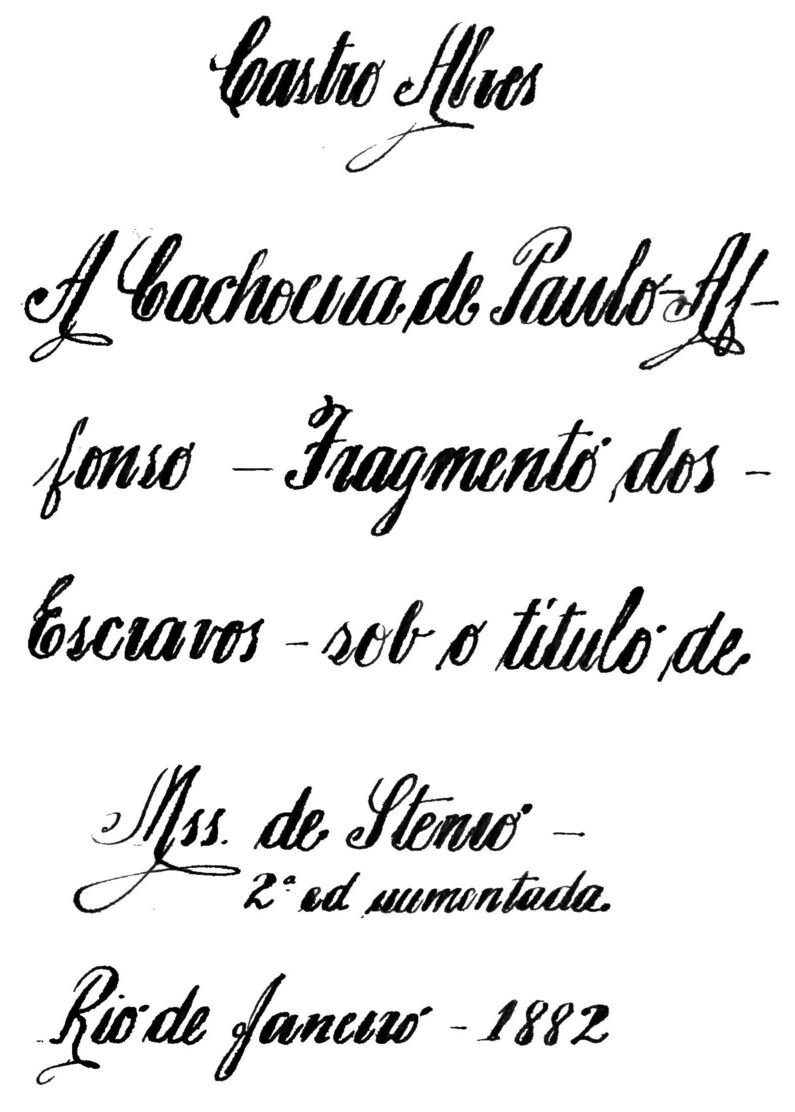 Castro Alves
A Cachoeira de Paulo-Af-
fonso — Fragmento dos —
Escravos — sob o titulo de
Mss. de Stenio —
2ª ed augmentada.
Rio de Janeiro — 1882